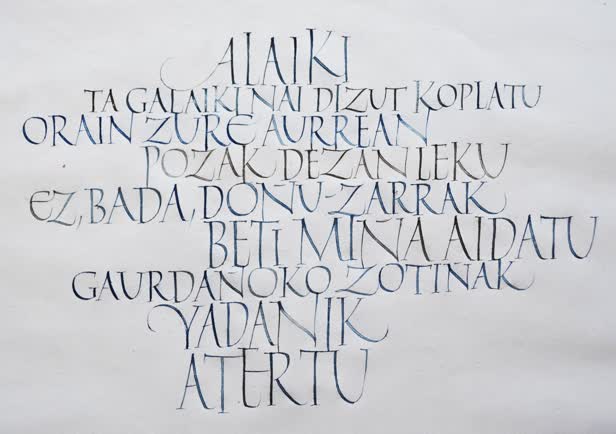 ALAIKI
TA GALAIKI NAI DIZUT KOPLATU
ORAIN ZURE AURREAN
POZAK DEZAN LEKU
EZ, BADA, DOÑU-ZARRAK
BETI MIÑA AIDATU
GAURDAÑOKO ZOTINAK
YADANIK
ATERTU